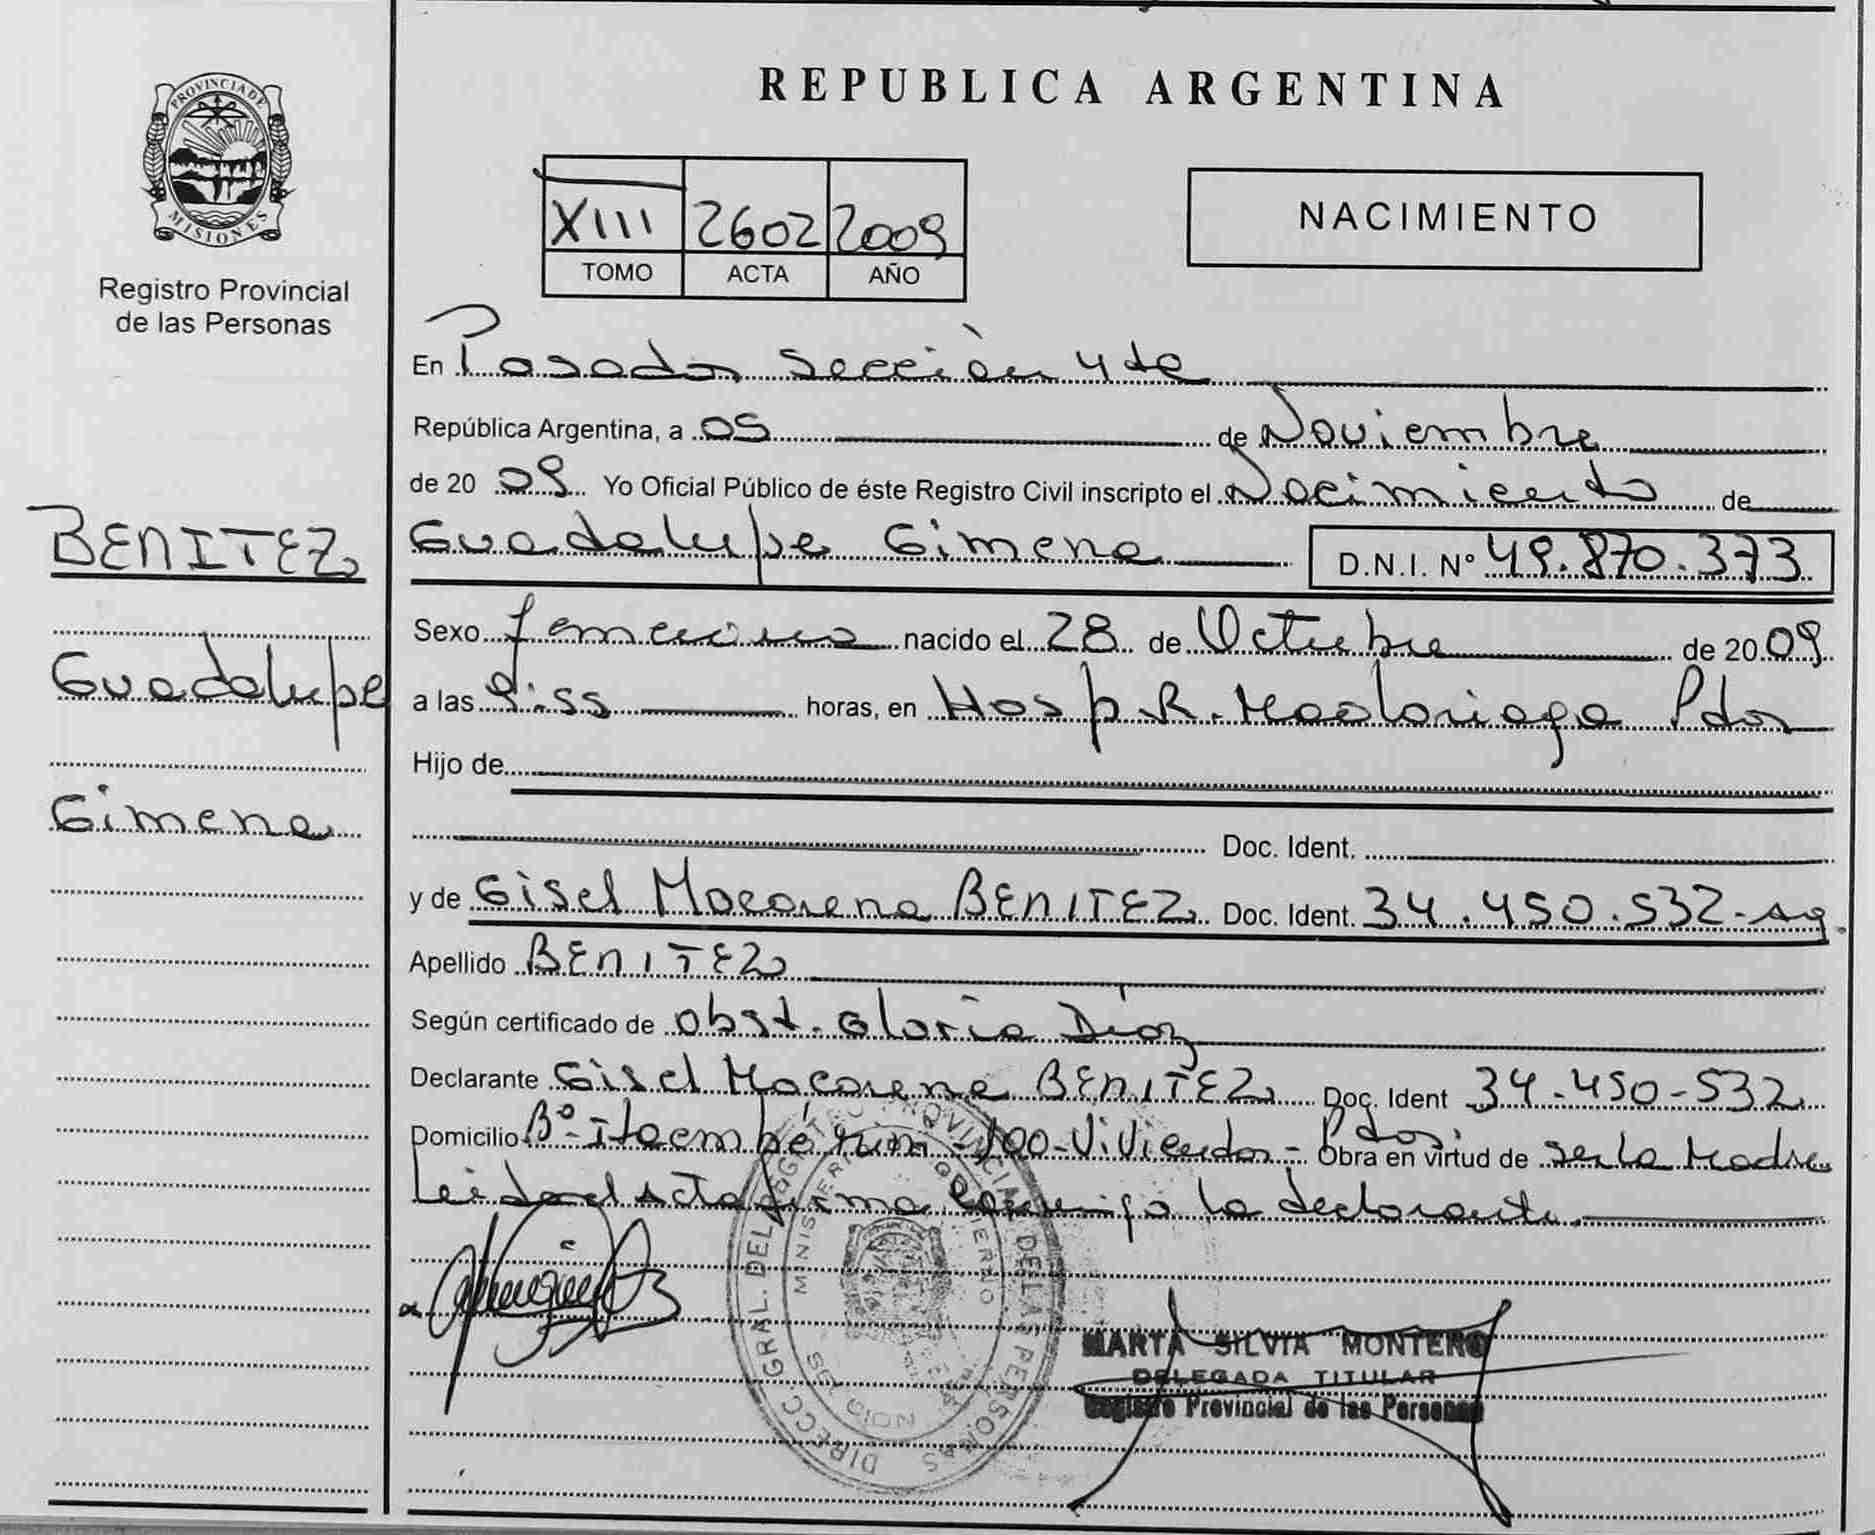 PROVINCIA DE
MISIONES
Registro Provincial
de las Personas
BENITEZ
Guadalupe
Gimena
REPUBLICA ARGENTINA
XIII 2602 2009
TOMO ACTA AÑO
NACIMIENTO
En Posadas Sección 4ta
República Argentina, a 05 de Noviembre
de 20 09 Yo Oficial Público de éste Registro Civil inscripto el Nacimiento de
Guadalupe Gimena D.N.I. Nº 49.870.373
Sexo femenino nacido el 28 de Octubre de 20 09
a las 9:55 horas, en Hosp R. Madariaga Pdas
Hijo de
Doc. Ident.
y de Gisel Macarena BENITEZ Doc. Ident. 34.450.532-Ag.
Apellido BENITEZ
Según certificado de Obst. Gloria Díaz
Declarante Gisel Macarena BENITEZ Doc. Ident 34-450-532
Domicilio Bº Itaembé 100-Viviendas- Pdas. Obra en virtud de ser la Madre
Leida el Acta firma conmigo la declarante.
DIRECC. GRAL. DEL REGISTRO PROVINCIAL DE LAS PERSONAS
MINISTERIO GOBIERNO
MARTA SILVIA MONTERO
DELEGADA TITULAR
Registro Provincial de las Personas